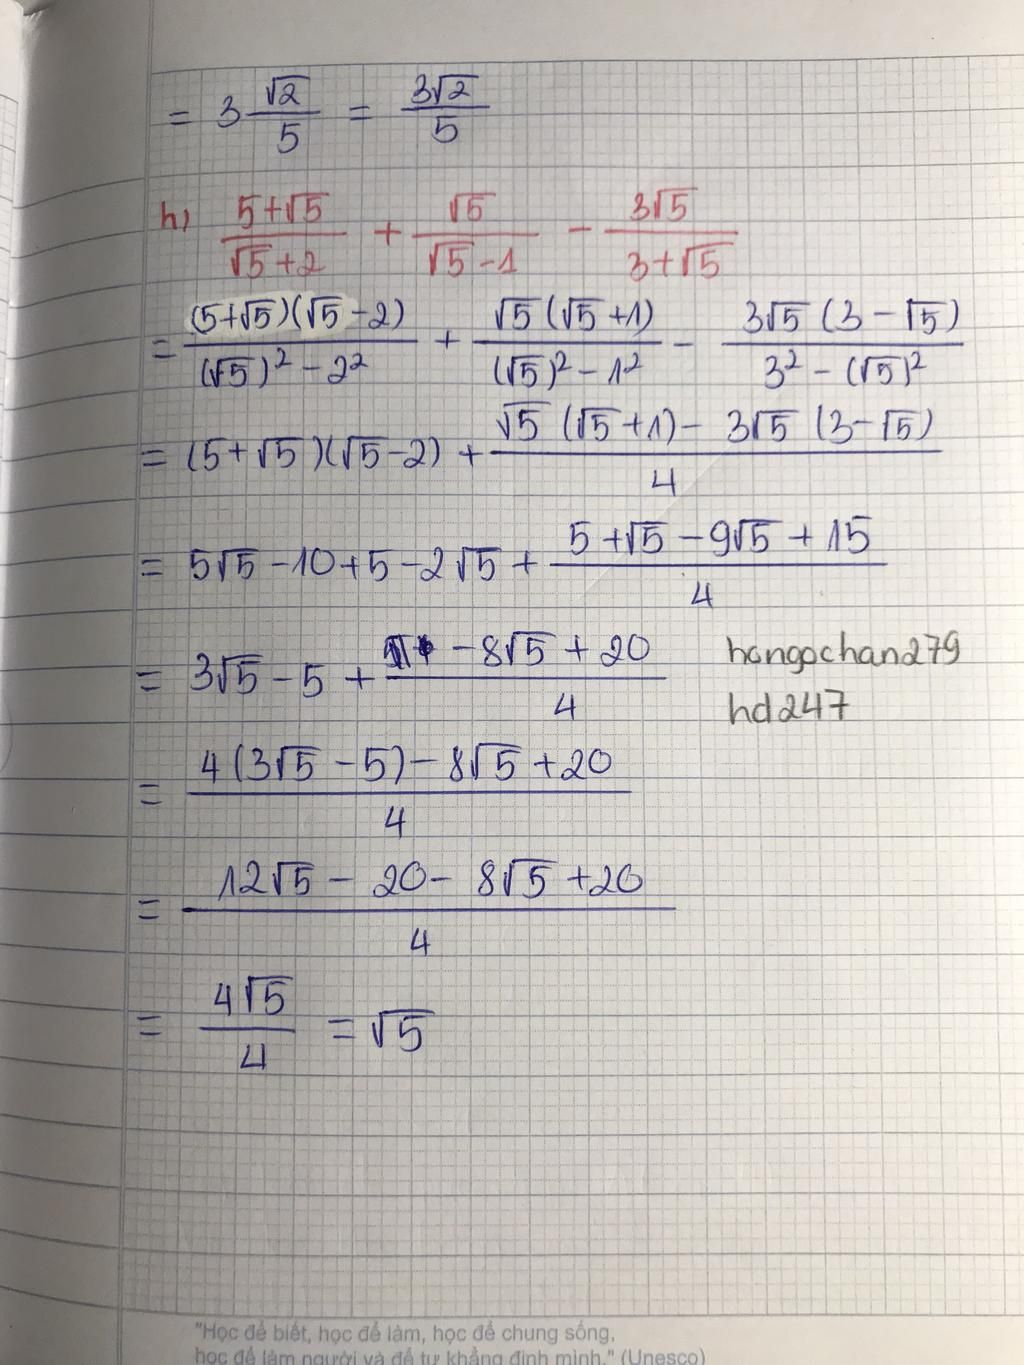 = 3 √2/5 = 3√2/5
h) (5+√5)/(√5+2) + √5/(√5-1) - 3√5/(3+√5)
= (5+√5)(√5-2)/((√5)² - 2²) + √5(√5+1)/((√5)² - 1²) - 3√5(3-√5)/(3² - (√5)²)
= (5+√5)(√5-2) + (√5(√5+1) - 3√5(3-√5))/4
= 5√5 - 10 + 5 - 2√5 + (5+√5-9√5+15)/4
= 3√5 - 5 + (-8√5 + 20)/4
hongochan279
hd247
= (4(3√5-5) - 8√5 + 20)/4
= (12√5 - 20 - 8√5 + 20)/4
= 4√5/4 = √5
"Học để biết, học để làm, học để chung sống,
học để làm người và để tự khẳng định mình." (Unesco)